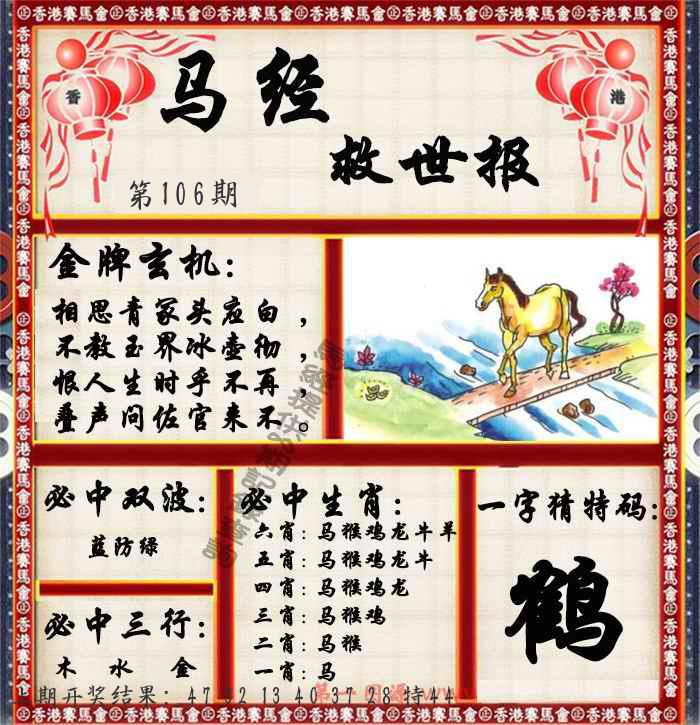 香港賽馬會
香
港
马经
救世报
第106期
金牌玄机:
相思青冢头应白,
不教玉界冰壶彻,
恨人生时乎不再,
叠声问佐官来不。
必中双波:
蓝防绿
必中三行:
木 水 金
必中生肖:
六肖:马猴鸡龙牛羊
五肖:马猴鸡龙牛
四肖:马猴鸡龙
三肖:马猴鸡
二肖:马猴
一肖:马
一字猜特码:
鹤
期开奖结果:47 02 13 40 37 28 特44